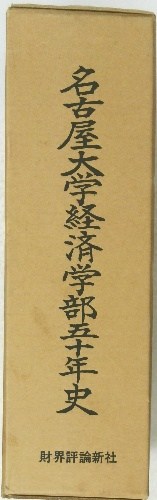 名古屋大学経済学部五十年史
財界評論新社